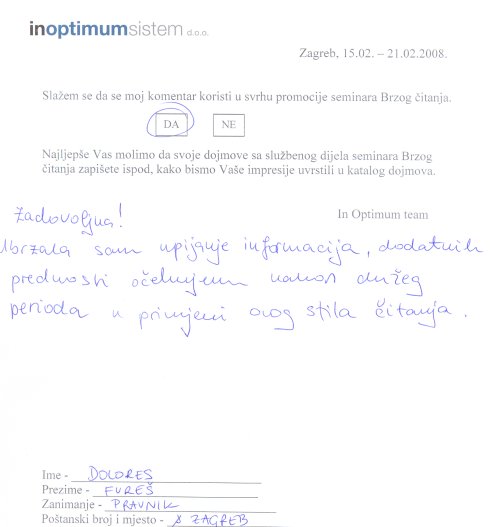 inoptimumsistem d.o.o.
Zagreb, 15.02. – 21.02.2008.
Slažem se da se moj komentar koristi u svrhu promocije seminara Brzog čitanja.
DA NE
Najljepše Vas molimo da svoje dojmove sa službenog dijela seminara Brzog
čitanja zapišete ispod, kako bismo Vaše impresije uvrstili u katalog dojmova.
In Optimum team
Zadovoljna!
Ubrzala sam upijanje informacija, dodatnih
prednosti očekujem nakon dužeg
perioda u primjeni ovog stila čitanja.
Ime - DOLORES
Prezime - FUREŠ
Zanimanje - PRAVNIK
Poštanski broj i mjesto - ZAGREB